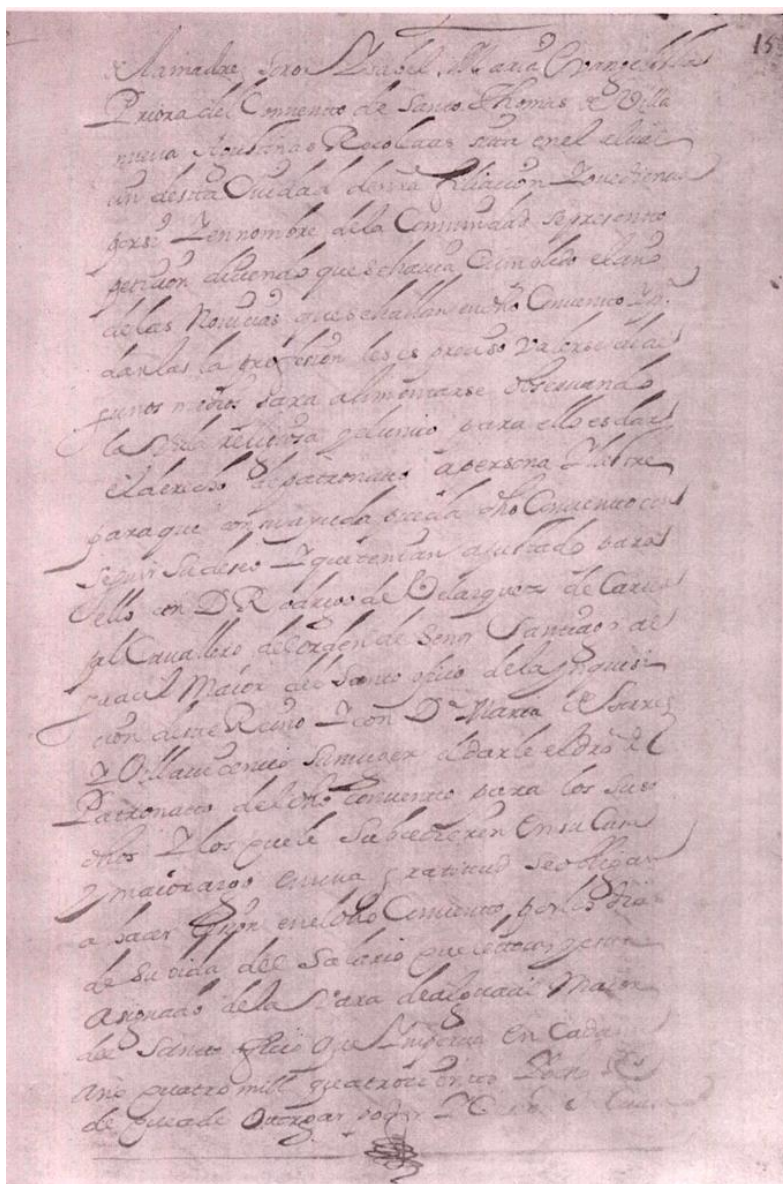 15
la madre soror Ysabel Maria Evangelista
Priora del Convento de Santo Thomas de Villa
nueva Agustinas Recoletas
desta Ciudad filiacion Y obediencia
por si Y en nombre de la Comunidad se presento
peticion diciendo que se havia Cumplido el año
de las Novicias que se hallan en dho Convento Y
darlas la profesion les es preciso valerse de al
gunos medios para alimentarse observando
la vida religiosa para ello es dar
el derecho de patronato a persona Ylustre
para que con su ayuda pueda dho Convento con
seguir su deseo Y que tenian ajustado para
ello con D Rodrigo de Velazquez de Carva
jal Cavallero del orden de Señor Santiago al
guacil Maior del Santo oficio de la Ynquisi
cion deste Reino Y con Da Maria de Suares
Y Villavicencio su muger el darle el dro de
Patronato del dho Convento para los suso
dhos Y los que le subcedieren En su Cassa
Y maiorazgo en cuia gratitud se obligan
a hacer en el dho Convento por los dias
de su vida del Salario que
asignado de la Vara de alguacil Maior
del Santo oficio que Ymporta En Cada
año quatro mill quatrocientos Y
de puede otorgar